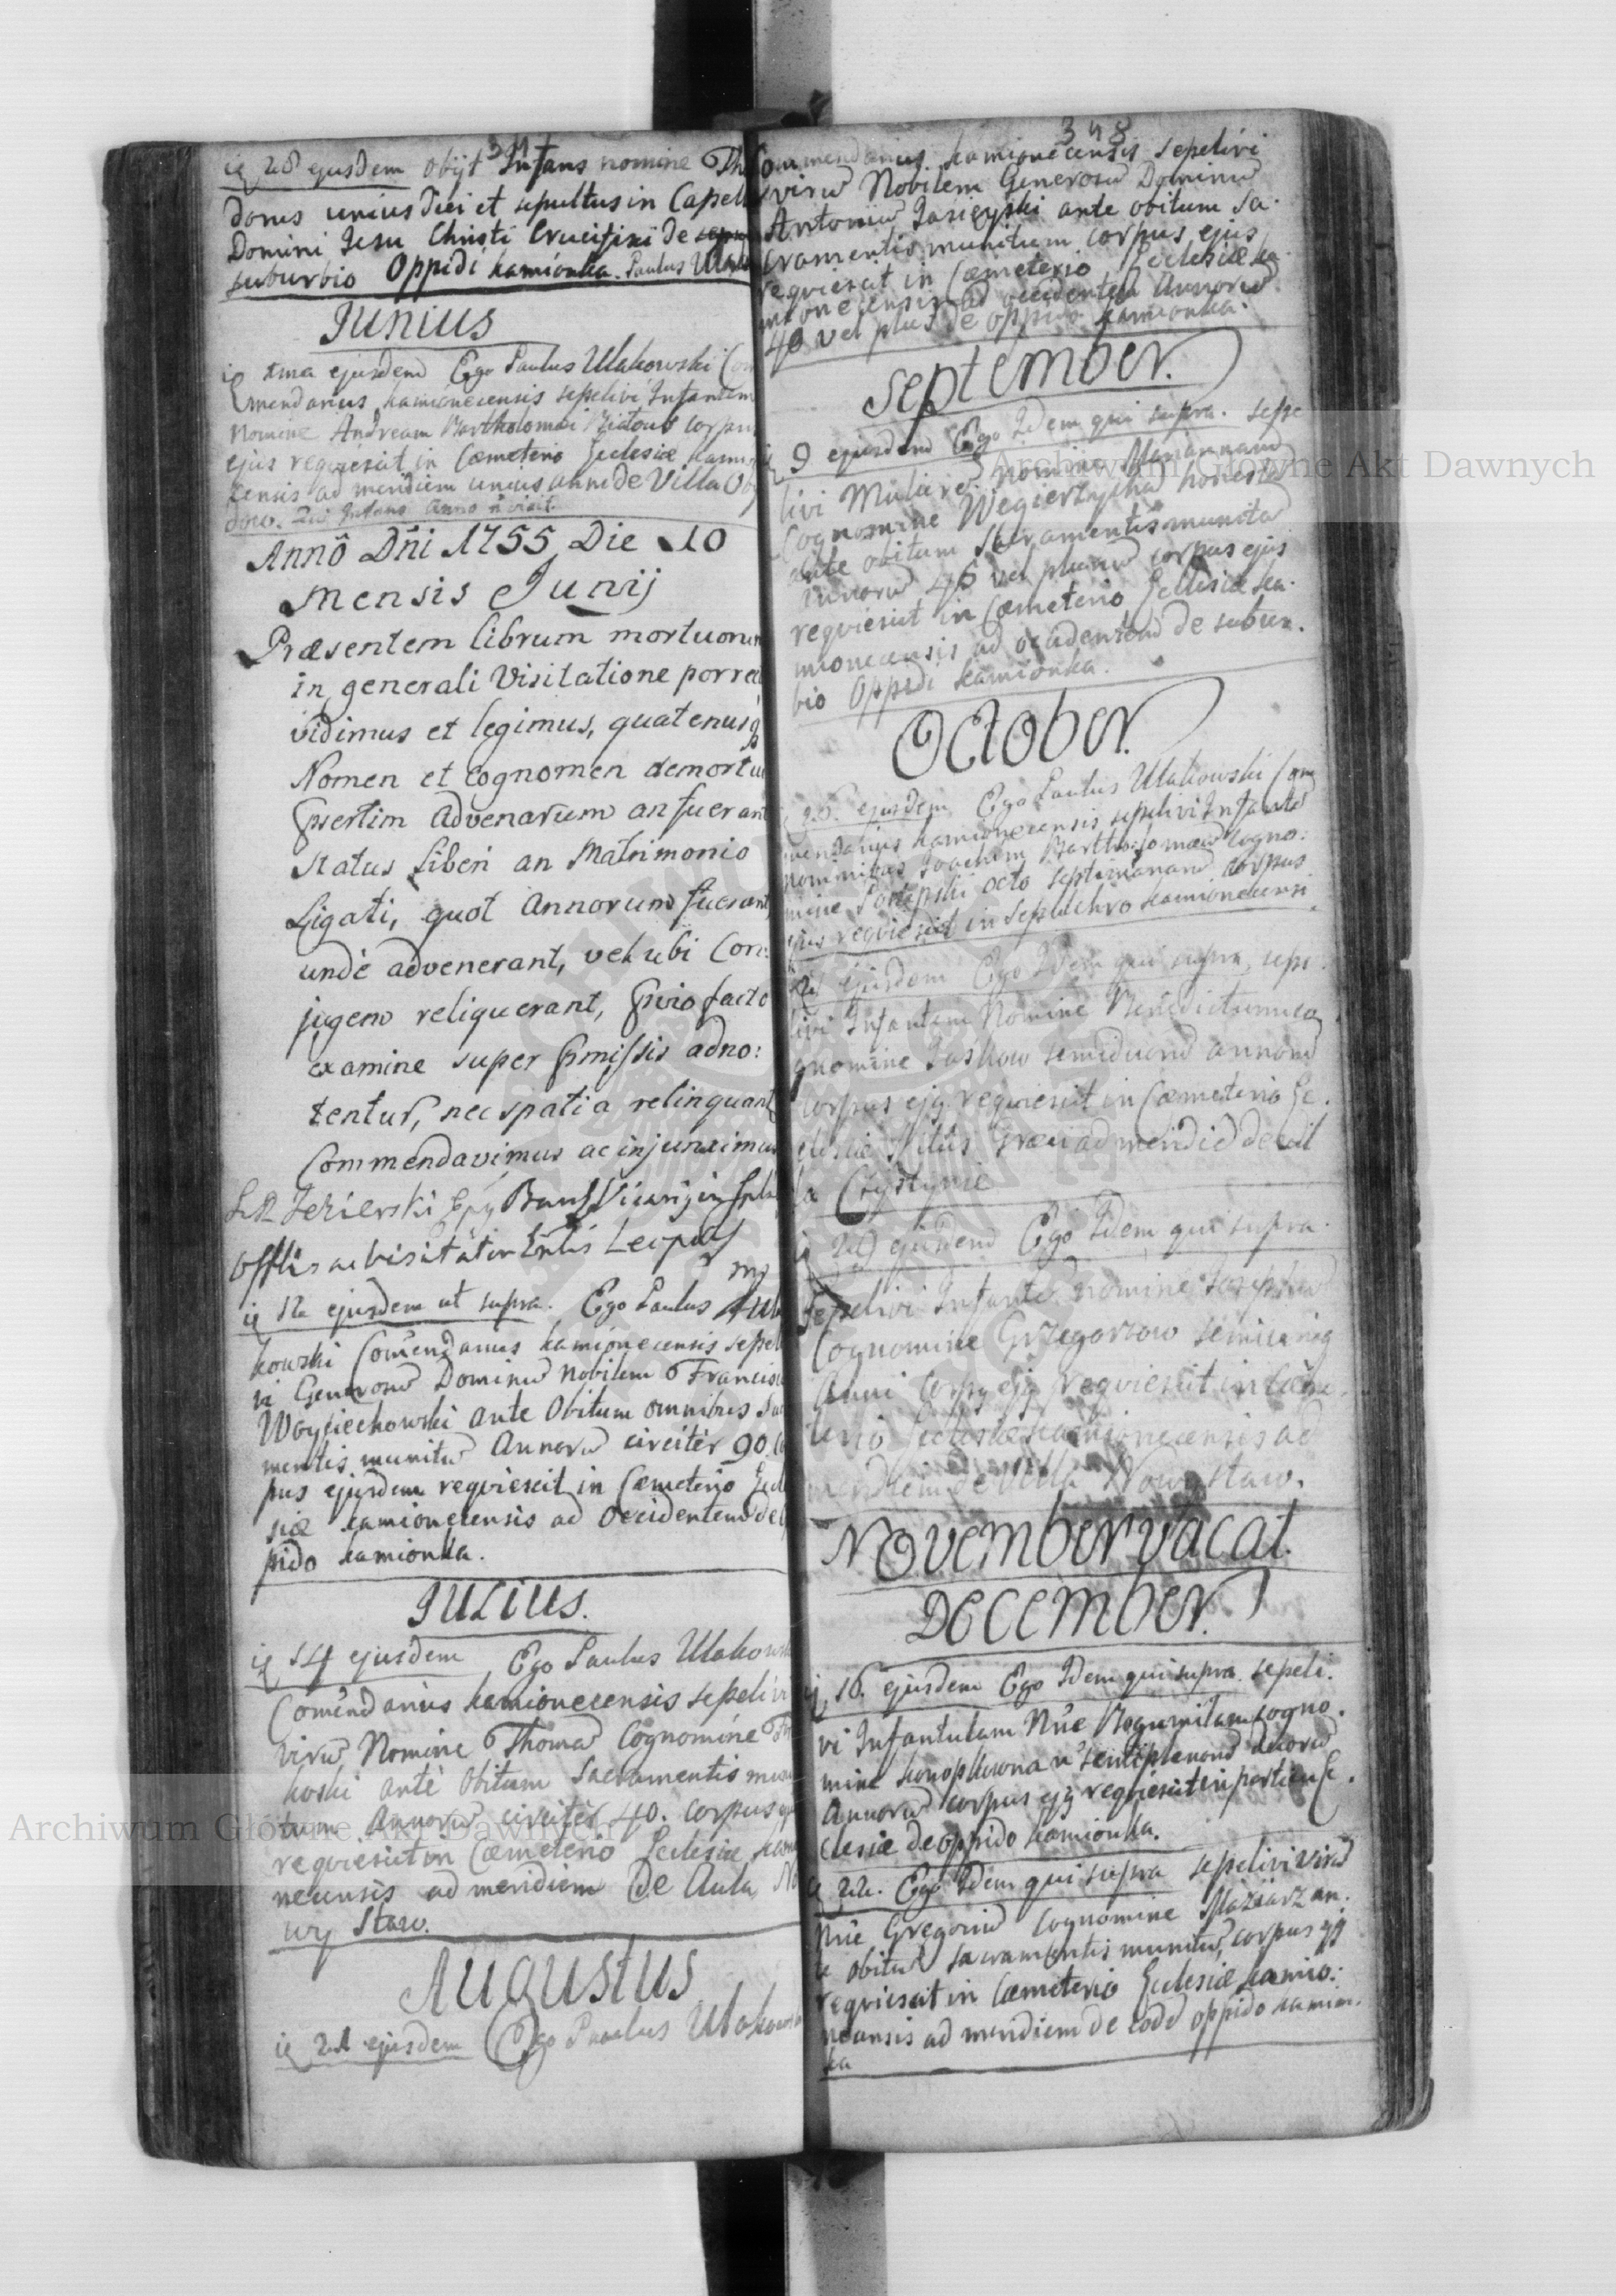 347
ie 28 ejusdem obijt Infans nomine Theo
dorus unius diei et sepultus in Capell
Domini Jesu Christi Crucifixi de
suburbio Oppidi kamionka. Paulus Ulak
Junius
ie 1ma ejusdem Ego Paulus Ulakowski Com
mendarius kamionecensis sepelivi Infantem
nomine Andream Bartholomæi corpus
ejus requiescit in Cæmeterio Ecclesiæ kamio
censis ad meridiem unius anni de Villa
Infans Anno
Annô Dñi 1755 Die 10
Mensis Junij
Præsentem librum mortuorum
in generali Visitatione porrec
vidimus et legimus, quatenus
Nomen et Cognomen demortu
psertim advenarum an fuerant
status liberi an Matrimonio
Ligati, quot Annorum fuerant
undè advenerant, vel ubi Con:
jugem reliquerant, prvio facto
examine super pmissis adno:
tentur, nec spatia relinquant
Commendavimus ac injunximus
Offlis ac Visitator Leopol
ie 12 ejusdem ut supra. Ego Paulus
kowski Com̃endarius kamionecensis sepel
vi Generosũ Dominũ Nobilem Francisc
Woyciechowski ante Obitum omnibus Sac
mentis munitũ Annorũ circitèr 90 Co
pus ejusdem requiescit in Cæmeterio Eccl
siæ kamionecensis ad Occidentem de Op
pido kamionka.
Julius.
ie 14 ejusdem Ego Paulus Ulakowski
Com̃endarius kamionecensis sepelivi
virũ Nomine Thomã Cognomine
koski antè Obitum Sacramentis muni
tum Annorũ circitèr 40. corpus ejus
requiescit in Cæmeterio Ecclesiæ kamio
necensis ad meridiem De Aula No
wy Staw.
Augustus
ie 21 ejusdem Ego Paulus Ulakowski
348
Commendarius kamionecensis sepelivi
virũ Nobilem Generosũ Dominũ
Antoniũ Jasieyski ante obitum Sa.
cramentis munitum corpus ejus
requiescit in Cæmeterio Ecclesiæ ka.
mionecensis ad occidentem Annorũ
40 vel plus de oppido kamionka.
September.
ie 9 ejusdem Ego Idem qui supra. sepe
livi Mulierẽ nomine Mariannam
Cognomine Wegierzycha honestã
ante obitum Sacramentis munitã
Annorũ 46 vel plus corpus ejus
requiescit in Cæmeterio Ecclesiæ ka.
mionecensis ad occidentem de subur.
bio Oppidi kamionka.
October.
ie 26 ejusdem Ego Paulus Ulakowski Com
mendarius kamionecensis sepelivi Infantẽ
nominibus Joachim Bartholomæũ cogno:
mine octo septimanarũ corpus
ejus requiescit in Sepulchro kamionecensi.
ejusdem Ego Idem qui supra, sepe.
livi Infantem Nomine Benedictum co
gnomine Jaskow semiduorũ annorũ
corpus ejq requiescit in Cæmeterio Ec.
clesiæ Ritûs Græci ad meridiẽ de vil
la
ie 29 ejusdem Ego Idem qui supra.
Sepelivi Infantẽ nomine Josephũ
Cognomine Grzegorzow
Anni Corpq ejq requiescit in Cæme.
terio Ecclesiæ kamionecensis ad
meridiem de Villa Nowystaw.
November vacat.
December.
ie 16. ejusdem Ego Idem qui supra. sepeli.
vi Infantulam Nñe Bogumilam cogno.
mine konopkowna
Annorũ corpus ejq requiescit in porticu Ec.
clesiæ de oppido kamionka.
ie 22. Ego Idem qui supra sepelivi virũ
Nñe Gregoriũ cognomine Maziarz an.
te obitũ sacramentis munitũ, corpus ejq
requiescit in Cæmeterio Ecclesiæ kamio:
necensis ad meridiem de eodẽ oppido kamion.
ka
Archiwum Główne Akt Dawnych
Archiwum Główne Akt Dawnych